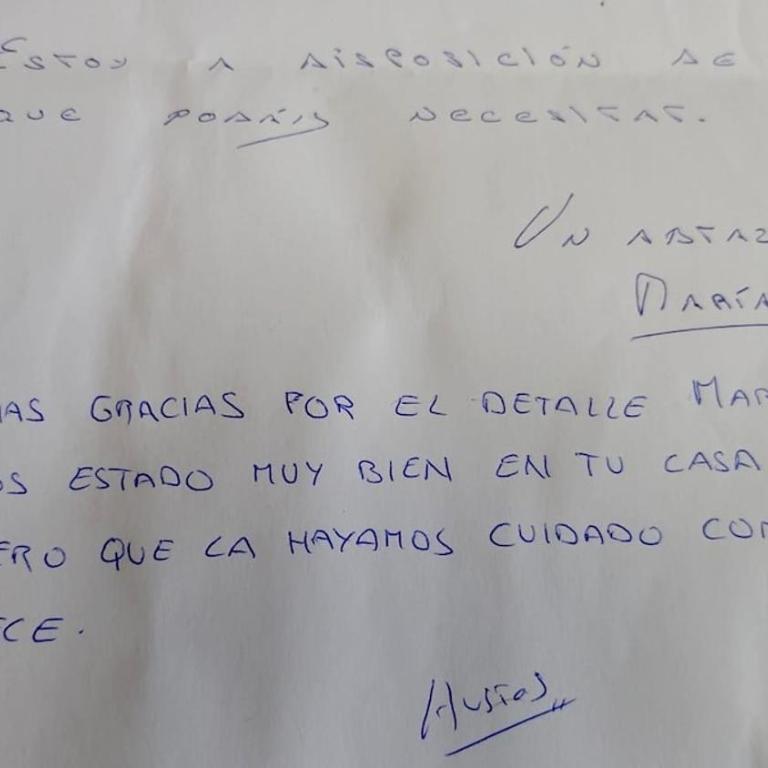 Estoy a disposición de
que podáis necesitar.
Un abraz
María
AS GRACIAS POR EL DETALLE MAR
OS ESTADO MUY BIEN EN TU CASA
ERO QUE LA HAYAMOS CUIDADO COM
ECE.